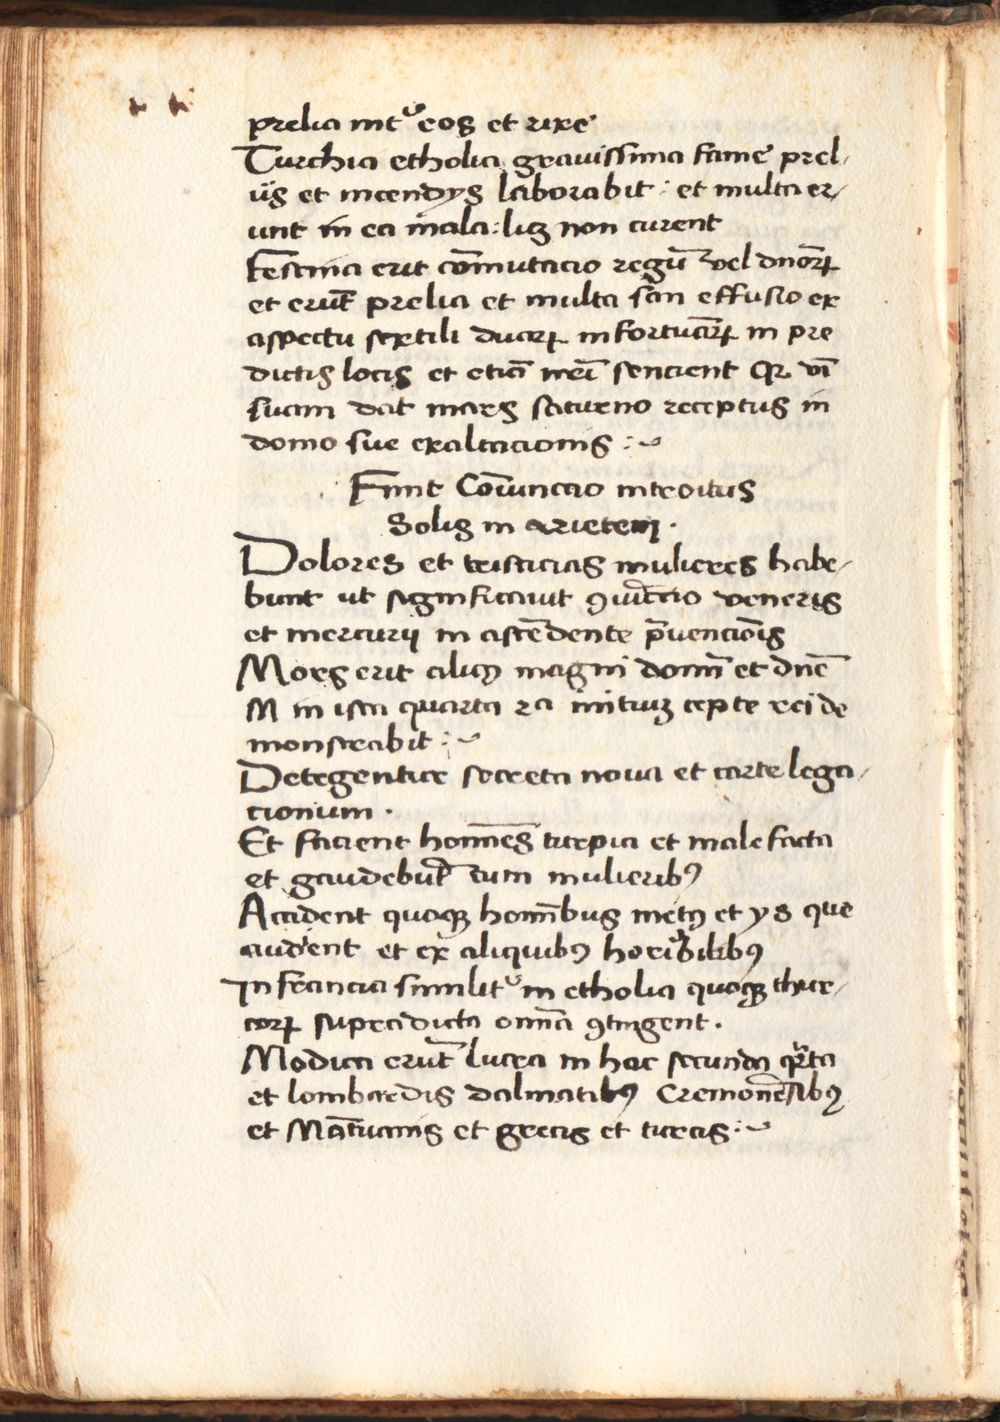 prelia intᵘ eos et rixe
Turchia etholia gravissima fame prel/
iis et incendys laborabit : et multa er/
unt in ea mala : licꝫ non curent
Festina erit com̄utacio regū vel dnōꝝ
et erūt prelia et multa sān effusio ex
aspectu sextili duorꝝ infortuāꝝ in pre
dictis locis et etiā sencient vī
suam dat mars saturno receptus in
domo sue exaltacionis :~
Finit Coīunctio introitus
Solis in arietem .
Dolores et tristicias mulieres habe/
bunt ut significavit ꝯiūctio veneris
et mercurii in ascēdente p̄uencionis
Mors erit alicꝰ magni domī et dn̄e
in ista quarta initiuꝫ cepte rei de
monstrabit :~
Detegentur secreta nova et carte lega/
cionum .
Et facient homēs turpia et male facta
et gaudebūt cum mulieribꝰ
Accident quoqꝫ homībus metꝰ et ys que
audient et ex aliquibꝰ horribilibꝰ
In francia similitᵘ in etholia quoqꝫ thur/
corꝝ supradicta om̄ia ꝯtingent .
Modica erūt lucra in hac secunda qᵃrta
et lombardis dalmatibꝰ Cremonēsibꝰ
et Mātuanis et grecis et turcis :~